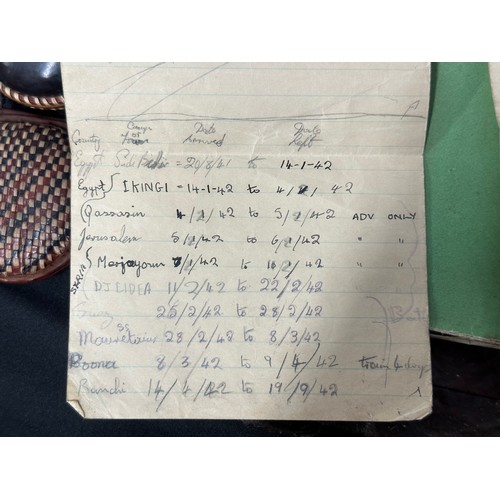 Country Camp or Town Date Arrived Date Left
Egypt Sidi Bishr = 20/8/41 to 14-1-42
Egypt { IKINGI = 14-1-42 to 4/2/42
Qassasin 4/2/42 to 5/2/42 ADV ONLY
Jerusalem 5/2/42 to 6/2/42 " "
SYRIA { Merjayoun 7/2/42 to 10/2/42 " "
DJEIDEA 11/2/42 to 22/2/42
Suez 25/2/42 to 28/2/42
SS Mauretania 28/2/42 to 8/3/42
Boona 8/3/42 to 9/4/42 train 4 days
Banchi 14/4/42 to 19/9/42